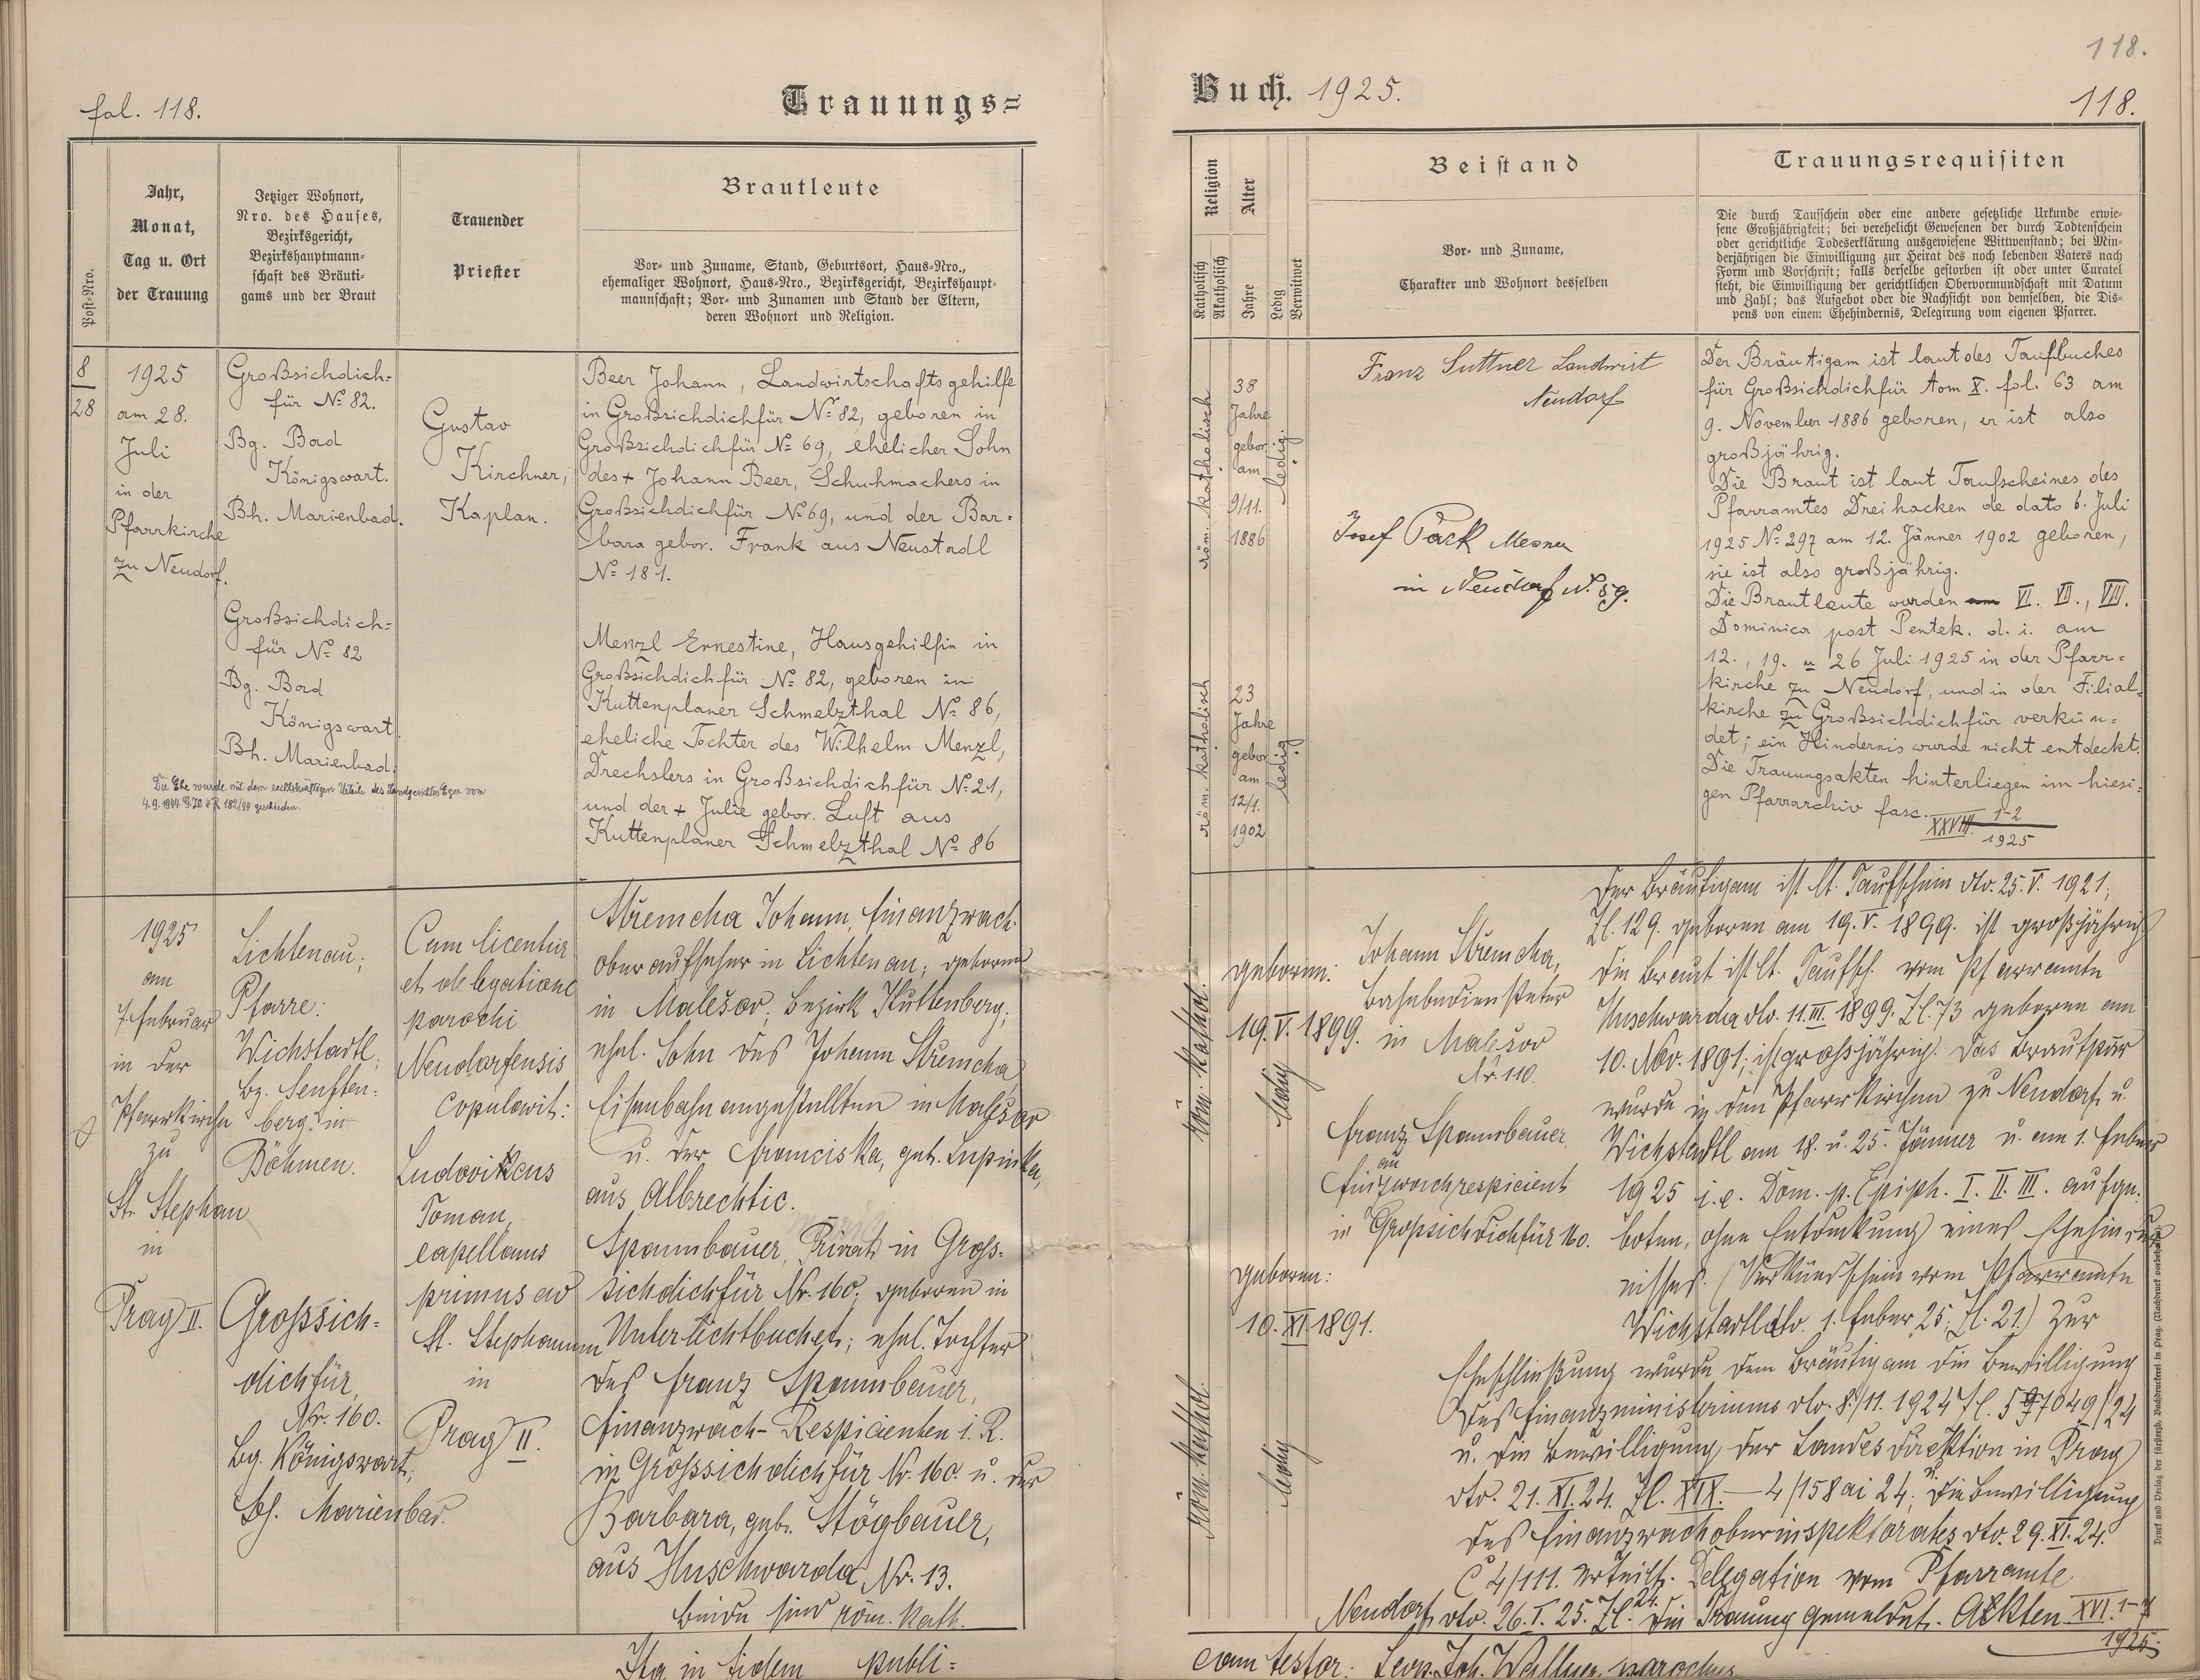 fol. 118.
Trauungs=
Post-Nro.
Jahr,
Monat,
Tag u. Ort
der Trauung
Jetziger Wohnort,
Nro. des Hauses,
Bezirksgericht,
Bezirkshauptmann-
schaft des Bräuti-
gams und der Braut
Trauender
Priester
Brautleute
Vor- und Zuname, Stand, Geburtsort, Haus-Nro.,
ehemaliger Wohnort, Haus-Nro., Bezirksgericht, Bezirkshaupt-
mannschaft; Vor- und Zunamen und Stand der Eltern,
deren Wohnort und Religion.
8
28
1925
am 28.
Juli
in der
Pfarrkirche
zu Neudorf.
Großsichdich=
für No 82.
Bg. Bad
Königswart.
Bh. Marienbad.
Großsichdich=
für No 82
Bg. Bad
Königswart.
Bh. Marienbad.
Die Ehe wurde mit dem rechtskräftigen Urteile des Landgerichtes Eger vom
4.9.1944 G.Zl. 4 R 182/44 geschieden.
Gustav
Kirchner,
Kaplan.
Beer Johann, Landwirtschaftsgehilfe
in Großsichdichfür No 82, geboren in
Großsichdichfür No 69, ehelicher Sohn
des + Johann Beer, Schuhmachers in
Großsichdichfür No 69, und der Bar=
bara gebor. Frank aus Neustadl
No 181.
Menzl Ernestine, Hausgehilfin in
Großsichdichfür No 82, geboren in
Kuttenplaner Schmelzthal No 86,
eheliche Tochter des Wilhelm Menzl,
Drechslers in Großsichdichfür No 21,
und der + Julie gebor. Luft aus
Kuttenplaner Schmelzthal No 86
1925
am
7. Februar
in der
Pfarrkirche
zu
St. Stephan
in
Prag II.
Lichtenau;
Pfarre:
Wichstadtl;
Bz. Senften=
berg in
Böhmen.
Grossich=
dichfür,
Nr. 160.
Bg. Königswart,
Bh. Marienbad.
Cum licentia
et delegatione
parochi
Neudorfensis
copulavit:
Ludovikcus
Toman,
capellanus
primus ad
St. Stephanum
in
Prag II.
Střemcha Johann, Finanzwach-
oberaufseher in Lichtenau; geboren
in Malešov, Bezirk Kuttenberg;
ehel. Sohn des Johann Střemcha
Eisenbahnangestellten in Malešov
u. der Franciska, geb. Lupinka,
aus Albrechtic.
Spannbauer, Privat in Gross-
sichdichfür Nr. 160; geboren in
Unterlichtbuchet; ehel. Tochter
des Franz Spannbauer,
Finanzwach-Respicienten i. R.
in Grossichdichfür Nr. 160. u. der
Barbara, geb. Stögbauer,
aus Huschwarda Nr. 13.
Beide sind röm. kath.
Ita in fidem publi=
118.
Buch. 1925.
118.
Religion
Katholisch
Akatholisch
Alter
Jahre
Ledig
Verwitwet
Beistand
Vor- und Zuname,
Charakter und Wohnort desselben
Trauungsrequisiten
Die durch Taufschein oder eine andere gesetzliche Urkunde erwie-
sene Großjährigkeit; bei verehelicht Gewesenen der durch Todtenschein
oder gerichtliche Todeserklärung ausgewiesene Wittwenstand; bei Min-
derjährigen die Einwilligung zur Heirat des noch lebenden Vaters nach
Form und Vorschrift; falls derselbe gestorben ist oder unter Curatel
steht, die Einwilligung der gerichtlichen Obervormundschaft mit Datum
und Zahl; das Aufgebot oder die Nachsicht von demselben, die Dis-
pens von einem Ehehindernis, Delegirung vom eigenen Pfarrer.
röm. katholisch
38
Jahre
gebor.
am
9/11.
1886
ledig
röm. katholisch
23
Jahre
gebor.
am
12/1.
1902
ledig
Franz Suttner Landwirt
Neudorf
Josef Pack Mesner
in Neudorf N. 59.
Der Bräutigam ist laut des Taufbuches
für Großsichdichfür tom X. fol. 63 am
9. November 1886 geboren, er ist also
großjährig.
Die Braut ist laut Taufscheines des
Pfarramtes Dreihacken de dato 6. Juli
1925 No 297 am 12. Jänner 1902 geboren,
sie ist also großjährig.
Die Brautleute wurden am VI. VII., VIII.
Dominica post Pentek. d. i. am
12., 19. u 26 Juli 1925 in der Pfarr=
kirche zu Neudorf, und in der Filial=
kirche zu Großsichdichfür verkün=
det; ein Hindernis wurde nicht entdeckt.
Die Trauungsakten hinterliegen im hiesi=
gen Pfarrarchiv fasc. XXVIII. 1-2
1925
röm. kathol.
geboren:
19. V. 1899.
ledig
röm. kathol.
geboren:
10. XI. 1891.
ledig
Johann Střemcha,
Bahnbediensteter
in Malešov
Nr. 110.
Franz Spannbauer
Finanzwachrespicient
in Grossichdichfür 160.
Der Bräutigam ist lt. Taufschein dto. 25. V. 1921,
Zl. 129. geboren am 19. V. 1899. ist großjährig
Die Braut ist lt. Taufsch. vom Pfarramte
Huschwarda dto. 11. III. 1899. Zl. 73 geboren am
10. Nov. 1891; ist grossjährig. Das Brautpaar
wurde in den Pfarrkirchen zu Neudorf u.
Wichstadtl am 18. u. 25. Jänner u. am 1. Feber
1925 i. e. Dom. p. Epiph. I. II. III. aufge-
boten, ohne Entdeckung eines Ehehinder
nisses. (Verkündschein vom Pfarramte
Wichstadtl dto. 1. Feber 25; Zl. 21.) Zur
Eheschließung wurde dem Bräutigam die Bewilligung
des Finanzministeriums dto. 8./11. 1924 Zl. 597049/24
u. die Bewilligung der Landesdirektion in Prag
dto. 21. XI. 24. Zl. XIX.—4/158 ai 24; die Bewilligung
des Finanzwachoberinspektorates dto. 29. XI. 24.
Č 4/111. erteilt. Delegation vom Pfarramte
Neudorf dto. 26. I. 25. Zl. 24. Die Trauung gemeldet. Akten XVI. 1-
1925
cam testor: Joh. Wallner, parochus
Druck und Verlag der fürsterzb. Buchdruckerei in Prag. (Nachdruck vorbehalten.)